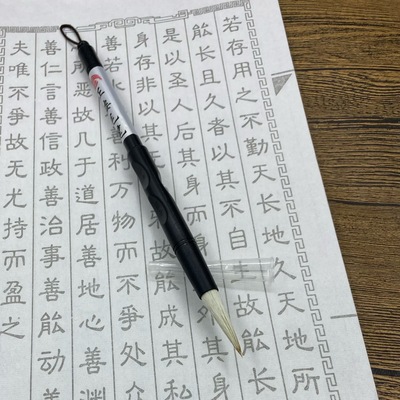 若存用之不勤天长地久天地所
能长且久者以其不自生故能长
是以圣人后其身而其身
身存非以其无故能成其私
善若水善利万物而不爭处众
所恶故几于道居善地心善渊
善仁言善信政善治事善能动善
夫唯不爭故无尤持而盈之